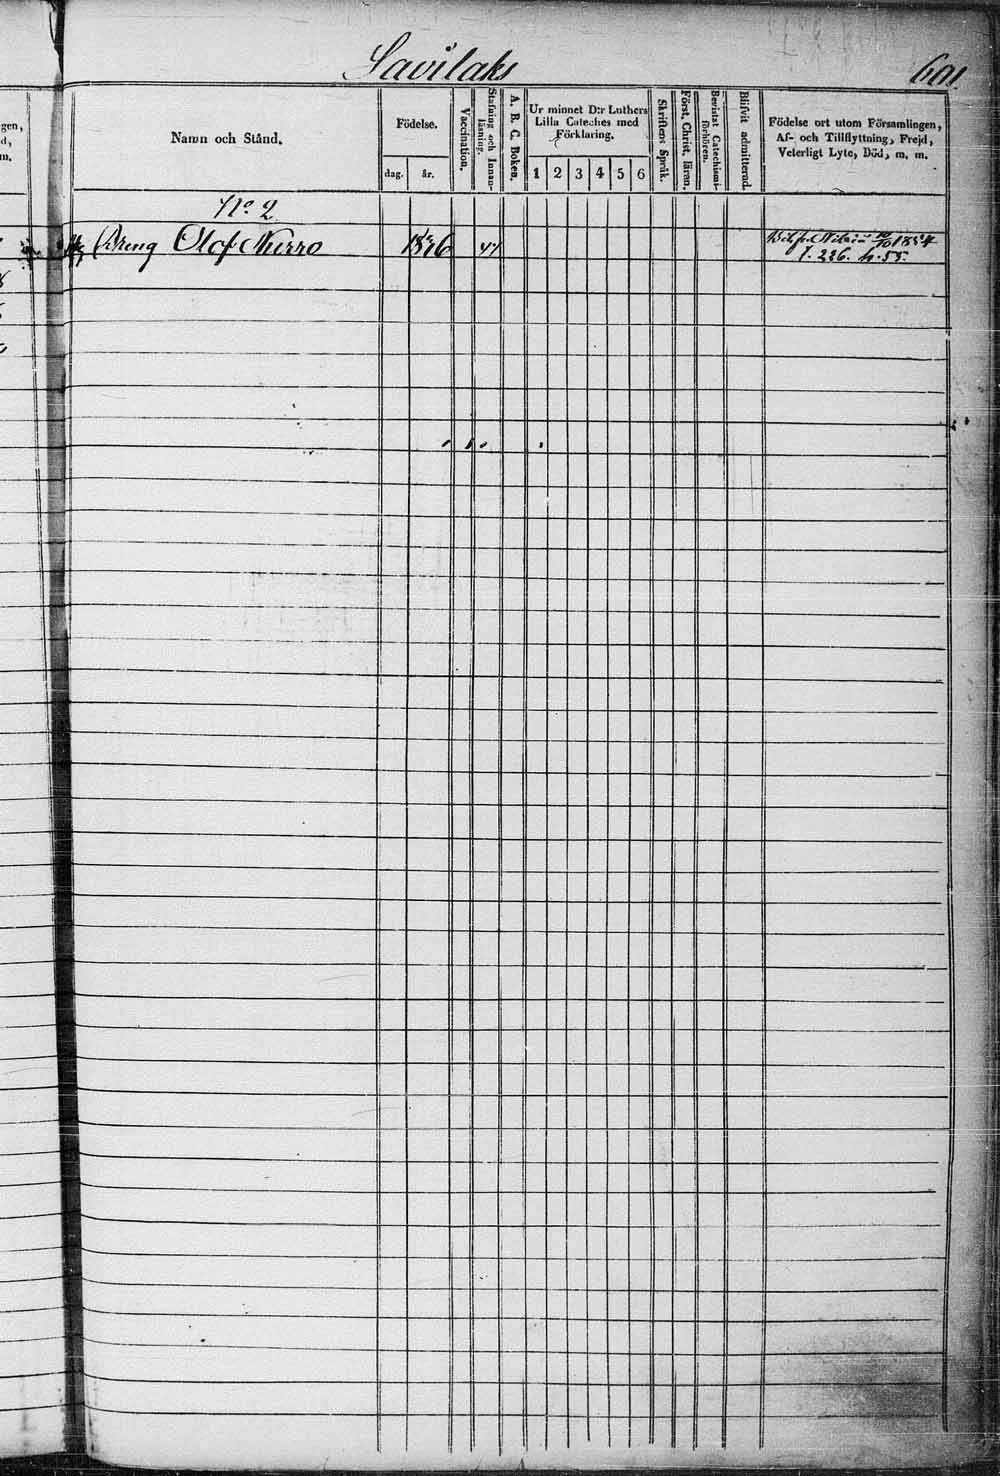 Savilaks
601.
gen,
d,
m.
Namn och Stånd.
Födelse.
dag.
år.
Vaccination.
Stafning och Innanläsning.
A. B. C. Boken.
Ur minnet D:r Luthers
Lilla Cateches med
Förklaring.
1 2 3 4 5 6
Skriftens Språk.
Först. Christ. läran.
Bevistat Catechismi-
förhören.
Blifvit admitterad.
Födelse ort utom Församlingen,
Af- och Tillflyttning, Frejd,
Veterligt Lyte, Död, m. m.
No. 2
Dreng Olof Nurro
1854
f. 236. n. 55.